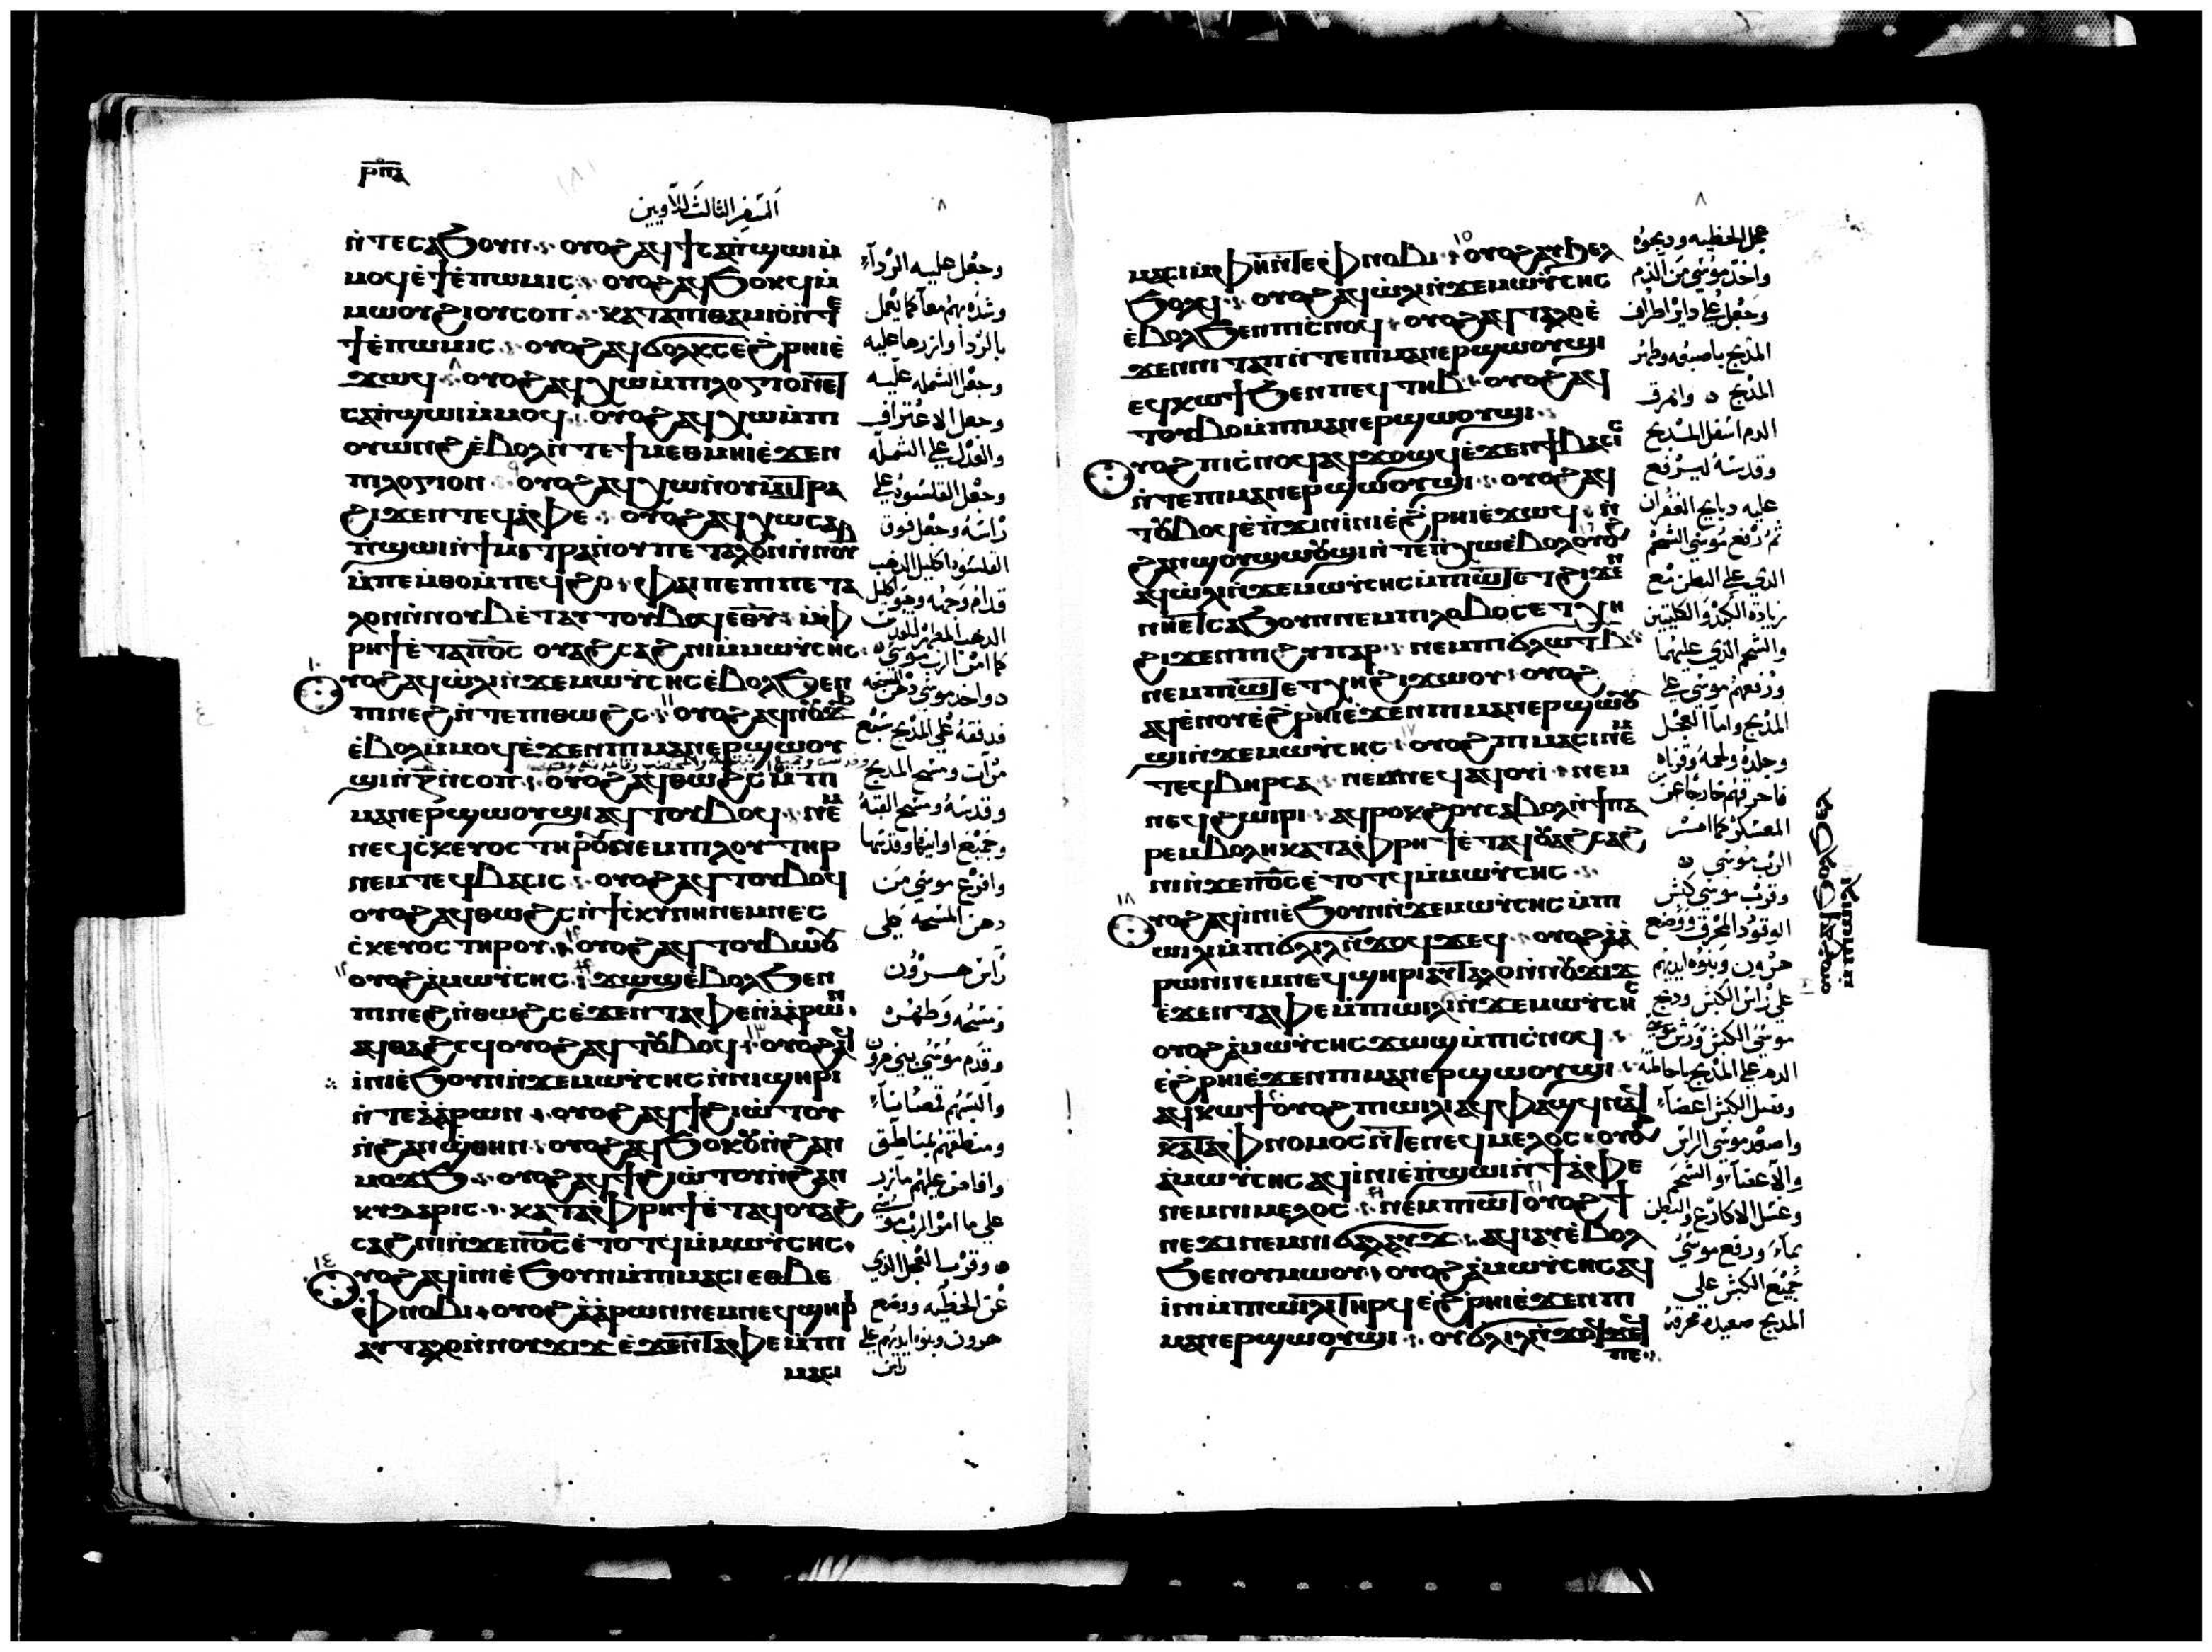 ⲣⲡⲁ
السفر الثالث للاويين
ⲛ̀ⲧⲉⲥⲁϧⲟⲩⲛ ⲟⲩⲟϩ ⲁϥϯⲥⲁⲡ̀ϣⲱⲓ ⲙ̀
ⲙⲟϥ ⲉ̀ϯⲉ̀ⲡⲱⲙⲓⲥ ⲟⲩⲟϩ ⲁϥϧⲟⲕϥ ⲙ̀
ⲙⲱⲟⲩ ϩⲓⲟⲩⲥⲟⲡ ⲕⲁⲧⲁ ⲡⲓⲑⲁⲙⲓⲟ ⲛ̀ⲧⲉ
ϯⲉ̀ⲡⲱⲙⲓⲥ ⲟⲩⲟϩ ⲁϥϭⲟⲗϫⲥ ⲉ̀ϩ̀ⲣⲏⲓ ⲉ̀
ϫⲱϥ ⲟⲩⲟϩ ⲁϥⲭⲱ ⲙ̀ⲡⲓⲗⲟⲅⲓⲟⲛ
ⲥⲁⲡ̀ϣⲱⲓ ⲙ̀ⲙⲟϥ ⲟⲩⲟϩ ⲁϥⲭⲱ ⲙ̀ⲡⲓ
ⲟⲩⲱⲛϩ ⲉ̀ⲃⲟⲗ ⲛ̀ⲧⲉ ϯⲙⲉⲑⲙⲏⲓ ⲉ̀ϫⲉⲛ
ⲡⲓⲗⲟⲅⲓⲟⲛ ⲟⲩⲟϩ ⲁϥⲭⲱ ⲛ̀ⲟⲩⲙⲓⲧⲣⲁ
ϩⲓϫⲉⲛ ⲧⲉϥⲁⲫⲉ ⲟⲩⲟϩ ⲁϥⲭⲱ ⲥⲁ
ⲡ̀ϣⲱⲓ ⲛ̀ϯⲙⲓⲧⲣⲁ ⲛ̀ⲟⲩⲡⲉⲧⲁⲗⲟⲛ ⲛ̀ⲛⲟⲩⲃ
ⲙ̀ⲡⲉⲙ̀ⲑⲟ ⲙ̀ⲡⲉϥϩⲟ ⲫⲁⲓ ⲡⲉ ⲡⲓⲡⲉⲧⲁ
ⲗⲟⲛ ⲛ̀ⲛⲟⲩⲃ ⲉ̀ⲧⲁⲩⲧⲟⲩⲃⲟϥ ⲉⲑⲩ ⲙ̀ⲫ
ⲣⲏϯ ⲉ̀ⲧⲁ ⲡⲟ̅ⲥ̅ ⲟⲩⲁϩⲥⲁϩⲛⲓ ⲙ̀ⲙⲱⲩⲥⲏⲥ
ⲩⲟϩ ⲁϥⲱ̀ⲗⲓ ⲛ̀ϫⲉ ⲙⲱⲩⲥⲏⲥ ⲉ̀ⲃⲟⲗϧⲉⲛ
ⲡⲓⲛⲉϩ ⲛ̀ⲧⲉ ⲡⲓⲑⲱϩⲥ ⲟⲩⲟϩ ⲁϥⲛⲟⲩϫϧ
ⲉ̀ⲃⲟⲗ ⲙ̀ⲙⲟϥ ⲉ̀ϫⲉⲛ ⲡⲓⲙⲁⲛⲉⲣϣⲱⲟⲩ
ϣⲓ ⲛ̀ⲍ̅ ⲛ̀ⲥⲟⲡ ⲟⲩⲟϩ ⲁϥⲑⲱϩⲥ ⲙ̀ⲡⲓ
ⲙⲁⲛⲉⲣϣⲱⲟⲩϣⲓ ⲁϥⲧⲟⲩⲃⲟϥ ⲛⲉⲙ
ⲛⲉϥⲥⲕⲉⲩⲟⲥ ⲧⲏⲣⲟⲩ ⲛⲉⲙ ⲡⲓⲗⲟⲩⲧⲏⲣ
ⲛⲉⲙ ⲧⲉϥⲃⲁⲥⲓⲥ ⲟⲩⲟϩ ⲁϥⲧⲟⲩⲃⲟϥ
ⲟⲩⲟϩ ⲁϥⲑⲱϩⲥ ⲛ̀ϯⲥⲕⲩⲛⲏ ⲛⲉⲙ ⲛⲉⲥ
ⲥⲕⲉⲩⲟⲥ ⲧⲏⲣⲟⲩ ⲟⲩⲟϩ ⲁϥⲧⲟⲩⲃⲱⲟⲩ
ⲟⲩⲟϩ ⲁ̀ⲙⲱⲩⲥⲏⲥ ϫⲱϣ ⲉ̀ⲃⲟⲗϧⲉⲛ
ⲡⲓⲛⲉϩ ⲛ̀ⲑⲱϩⲥ ⲉ̀ϫⲉⲛ ⲧⲁⲫⲉ ⲛ̀ⲁ̀ⲁⲣⲱⲛ
ⲁϥⲑⲁϩⲥϥ ⲟⲩⲟϩ ⲁϥⲧⲟⲩⲃⲟϥ ⲟⲩⲟϩ ⲁϥ
ⲓ̀ⲛⲓ ⲉ̀ϧⲟⲩⲛ ⲛ̀ϫⲉ ⲙⲱⲩⲥⲏⲥ ⲛ̀ⲛⲓϣⲏⲣⲓ
ⲛ̀ⲧⲉ ⲁ̀ⲁⲣⲱⲛ ⲟⲩⲟϩ ⲁϥϯϩⲓⲱ̀ⲧⲟⲩ
ⲛ̀ϩⲁⲛϣ̀ⲑⲏⲛ ⲟⲩⲟϩ ⲁϥϧⲟⲕⲟⲩ ⲛ̀ϩⲁⲛ
ⲙⲟϫϧ ⲟⲩⲟϩ ⲁϥϯϩⲓⲱ̀ⲧⲟⲩ ⲛ̀ϩⲁⲛ
ⲕⲩⲇⲁⲣⲓⲥ ⲕⲁⲧⲁ ⲫⲣⲏϯ ⲉ̀ⲧⲁϥⲟⲩⲁϩ
ⲥⲁϩⲛⲓ ⲛ̀ϫⲉ ⲡⲟ̅ⲥ̅ ⲉ̀ⲧⲟⲧϥ ⲙ̀ⲙⲱⲩⲥⲏⲥ
ⲩⲟϩ ⲁϥⲓ̀ⲛⲓ ⲉ̀ϧⲟⲩⲛ ⲙ̀ⲡⲓⲙⲁⲥⲓ ⲉⲑⲃⲉ
ⲫⲛⲟⲃⲓ ⲟⲩⲟϩ ⲁ̀ⲁⲣⲱⲛ ⲛⲉⲙ ⲛⲉϥϣⲏⲣⲓ
ⲁⲩⲧⲁⲗⲟ ⲛ̀ⲛⲟⲩϫⲓϫ ⲉ̀ϫⲉⲛ ⲧⲁⲫⲉ ⲙ̀ⲡⲓ
ⲙⲁⲥⲓ
٨
وجعل عليه الردآء
وشده بهم معا كما يعمل
بالردا وازرها عليه
وجعل الشمله عليه
وجعل الاعتراف
والعدل علي الشمله
وجعل القلنسوه علي
راسه وجعل فوق
القلنسوه اكليل الذهب
قدام وجهه
كما امر الرب موسي
واخذ موسي دهن المسحه
فدفقه علي المذبح سبع
مرات ومسح المذبح
وقدسه ومسح القبه
وجميع اوانيها وقدسها
وافرغ موسي من
دهن المسحه علي
راس هرون
ومسحه وطهره
وقدم موسي بني هرون
والبسهم
ومنطقهم بمناطق
علي ما امر الرب موسي
وقرب العجل الذي
عن الخطيه ووضع
هرون وبنوه ايديهم علي
راس
٨
ⲙⲁⲥⲓ ⲙ̀ⲫⲏ ⲛ̀ⲧⲉ ⲫⲛⲟⲃⲓ ⲟⲩⲟϩ ⲁⲩϧⲉⲗ
ϧⲟⲗϥ ⲟⲩⲟϩ ⲁϥⲱ̀ⲗⲓ ⲛ̀ϫⲉ ⲙⲱⲩⲥⲏⲥ
ⲉ̀ⲃⲟⲗϧⲉⲛ ⲡⲓⲥⲛⲟϥ ⲟⲩⲟϩ ⲁϥⲧⲁⲗⲟ ⲉ̀
ϫⲉⲛ ⲛⲓⲧⲁⲡ ⲛ̀ⲧⲉ ⲡⲓⲙⲁⲛⲉⲣϣⲱⲟⲩϣⲓ
ⲉϥⲕⲱϯ ϧⲉⲛ ⲡⲉϥⲧⲏⲃ ⲟⲩⲟϩ ⲁϥ
ⲧⲟⲩⲃⲟ ⲙ̀ⲡⲓⲙⲁⲛⲉⲣϣⲱⲟⲩϣⲓ
ⲩⲟϩ ⲡⲓⲥⲛⲟϥ ⲁϥϫⲟϣϥ ⲉ̀ϫⲉⲛ ϯⲃⲁⲥⲓⲥ
ⲛ̀ⲧⲉ ⲡⲓⲙⲁⲛⲉⲣϣⲱⲟⲩϣⲓ ⲟⲩⲟϩ ⲁϥ
ⲧⲟⲩⲃⲟϥ ⲉ̀ⲡ̀ϫⲓⲛⲓ̀ⲛⲓ ⲉ̀ϩ̀ⲣⲏⲓ ⲉ̀ϫⲱϥ ⲛ̀
ϩⲁⲛϣⲟⲩϣⲱⲟⲩϣⲓ ⲛ̀ⲧⲉ ⲡⲭⲱ ⲉ̀ⲃⲟⲗ ⲟⲩⲟϩ
ⲁϥⲱ̀ⲗⲓ ⲛ̀ϫⲉ ⲙⲱⲩⲥⲏⲥ ⲙ̀ⲡⲓⲱⲧ ⲉⲧϩⲓϫⲉⲛ
ⲛⲏ ⲉⲧⲥⲁϧⲟⲩⲛ ⲛⲉⲙ ⲡⲓⲗⲟⲃⲟⲥ ⲉⲧⲭⲏ
ϩⲓϫⲉⲛ ⲡⲓϩⲩⲡⲁⲣ ⲛⲉⲙ ϯϭⲗⲱⲧ ⲃ̅
ⲛⲉⲙ ⲡⲓⲱⲧ ⲉⲧⲭⲏ ϩⲓϫⲱⲟⲩ ⲟⲩⲟϩ
ⲁϥⲉⲛⲟⲩ ⲉ̀ϩ̀ⲣⲏⲓ ⲉ̀ϫⲉⲛ ⲡⲓⲙⲁⲛⲉⲣϣⲱⲟⲩ
ϣⲓ ⲛ̀ϫⲉ ⲙⲱⲩⲥⲏⲥ ⲟⲩⲟϩ ⲡⲓⲙⲁⲥⲓ ⲛⲉⲙ
ⲧⲉϥⲃⲩⲣⲥⲁ ⲛⲉⲙ ⲛⲉϥⲁϥⲟⲩⲓ ⲛⲉⲙ
ⲛⲉϥϩⲱⲓⲣⲓ ⲁϥⲣⲟⲕϩⲟⲩ ⲥⲁⲃⲟⲗ ⲛ̀ϯⲡⲁ
ⲣⲉⲙⲃⲟⲗⲏ ⲕⲁⲧⲁ ⲫⲣⲏϯ ⲉ̀ⲧⲁϥⲟⲩⲁϩⲥⲁϩ
ⲛⲓ ⲛ̀ϫⲉ ⲡⲟ̅ⲥ̅ ⲉ̀ⲧⲟⲧϥ ⲙ̀ⲙⲱⲩⲥⲏⲥ
ⲩⲟϩ ⲁϥⲓ̀ⲛⲓ ⲉ̀ϧⲟⲩⲛ ⲛ̀ϫⲉ ⲙⲱⲩⲥⲏⲥ ⲙ̀ⲡⲓ
ⲱⲓⲗⲓ ⲙ̀ⲡⲓϭⲗⲓⲗ ⲛ̀ϫⲟϥϫⲉϥ ⲟⲩⲟϩ ⲁ̀ⲁ
ⲣⲱⲛ ⲛⲉⲙ ⲛⲉϥϣⲏⲣⲓ ⲁⲩⲧⲁⲗⲟ ⲛ̀ⲛⲟⲩϫⲓϫ
ⲉ̀ϫⲉⲛ ⲧⲁⲫⲉ ⲙ̀ⲡⲓⲱⲓⲗⲓ ⲛ̀ϫⲉ ⲙⲱⲩⲥⲏⲥ
ⲟⲩⲟϩ ⲁ̀ⲙⲱⲩⲥⲏⲥ ϫⲱϣ ⲙ̀ⲡⲓⲥⲛⲟϥ
ⲉ̀ϩ̀ⲣⲏⲓ ⲉ̀ϫⲉⲛ ⲡⲓⲙⲁⲛⲉⲣϣⲱⲟⲩϣⲓ
ⲁϥⲕⲱϯ ⲟⲩⲟϩ ⲡⲓⲱⲓⲗⲓ ⲁϥⲫⲁϣϥ
ⲕⲁⲧⲁ ⲫⲛⲟⲙⲟⲥ ⲛ̀ⲧⲉ ⲛⲉϥⲙⲉⲗⲟⲥ ⲟⲩⲟϩ
ⲁ̀ⲙⲱⲩⲥⲏⲥ ⲁϥⲓ̀ⲛⲓ ⲉ̀ⲡ̀ϣⲱⲓ ⲛ̀ϯⲁⲫⲉ
ⲛⲉⲙ ⲛⲓⲙⲉⲗⲟⲥ ⲛⲉⲙ ⲡⲓⲱⲧ ⲟⲩⲟϩ ϯ
ⲛⲉϫⲓ ⲛⲉⲙ ⲛⲓϭⲁⲗⲁⲩϫ ⲁϥⲓⲁⲩ ⲉ̀ⲃⲟⲗ
ϧⲉⲛ ⲟⲩⲙⲱⲟⲩ ⲟⲩⲟϩ ⲁ̀ⲙⲱⲩⲥⲏⲥ ⲁϥ
ⲓ̀ⲛⲓ ⲙ̀ⲡⲓⲱⲓⲗⲓ ⲧⲏⲣϥ ⲉ̀ϩ̀ⲣⲏⲓ ⲉ̀ϫⲉⲛ ⲡⲓ
ⲙⲁⲛⲉⲣϣⲱⲟⲩϣⲓ ⲟⲩϭⲗⲓⲗ ⲛ̀ϫⲟϥϫⲉϥ
ⲡⲉ
عجل الخطيه وذبحوه
واخذ موسي من الدم
وجعل علي داير اطراف
المذبح باصبعه وطهر
المذبح وافرق
الدم اسفل المذبح
وقدسه ليرفع
عليه ذبايح الغفران
ثم رفع موسي الشحم
الذي علي البطن مع
زيادة الكبد والكليتين
والشحم الذي عليهما
ورفعهم موسي علي
المذبح واما العجل
وجلده ولحمه وفرثه
فاحرقهم خارجا عن
المعسكر كما امر
الرب موسي
وقرب موسي كبش
الوقود المحرق ووضع
هرون وبنوه ايديهم
علي راس الكبش وذبح
موسي الكبش ورش موسي
الدم علي المذبح باحاطته
وفصل الكبش اعضآء
واصعد موسي الراس
والاعضآء والشحم
وغسل الاكارع والبطن
بمآء ورفع موسي
جميع الكبش علي
المذبح صعيدة محرقة